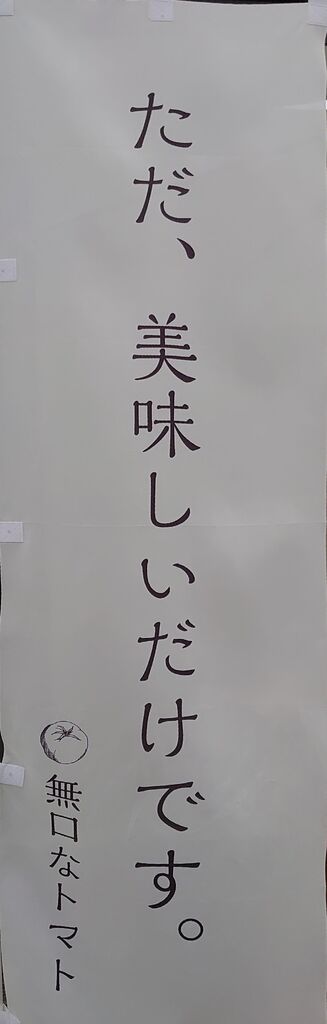 ただ、美味しいだけです。
無口なトマト